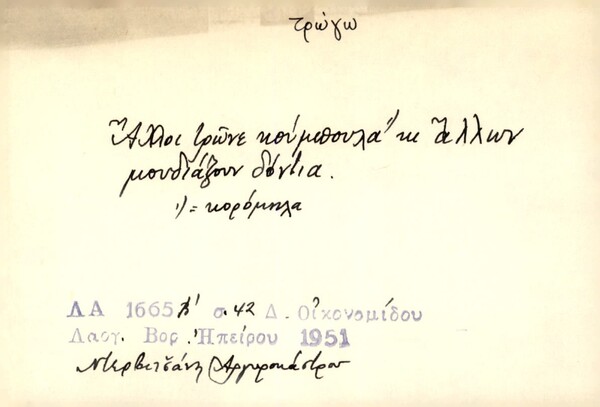 τρώγω
Ἄλλοι τρῶνε κούμπουλα¹⁾ κι ἄλλων
μουδιάζουν δόντια.
1) = κορόμηλα
ΛΑ 1665 Β' σ. 42 Δ. Οἰκονομίδου
Λαογ. Βορ. Ἠπείρου 1951
Ντερβιτσάνη Ἀργυροκάστρου